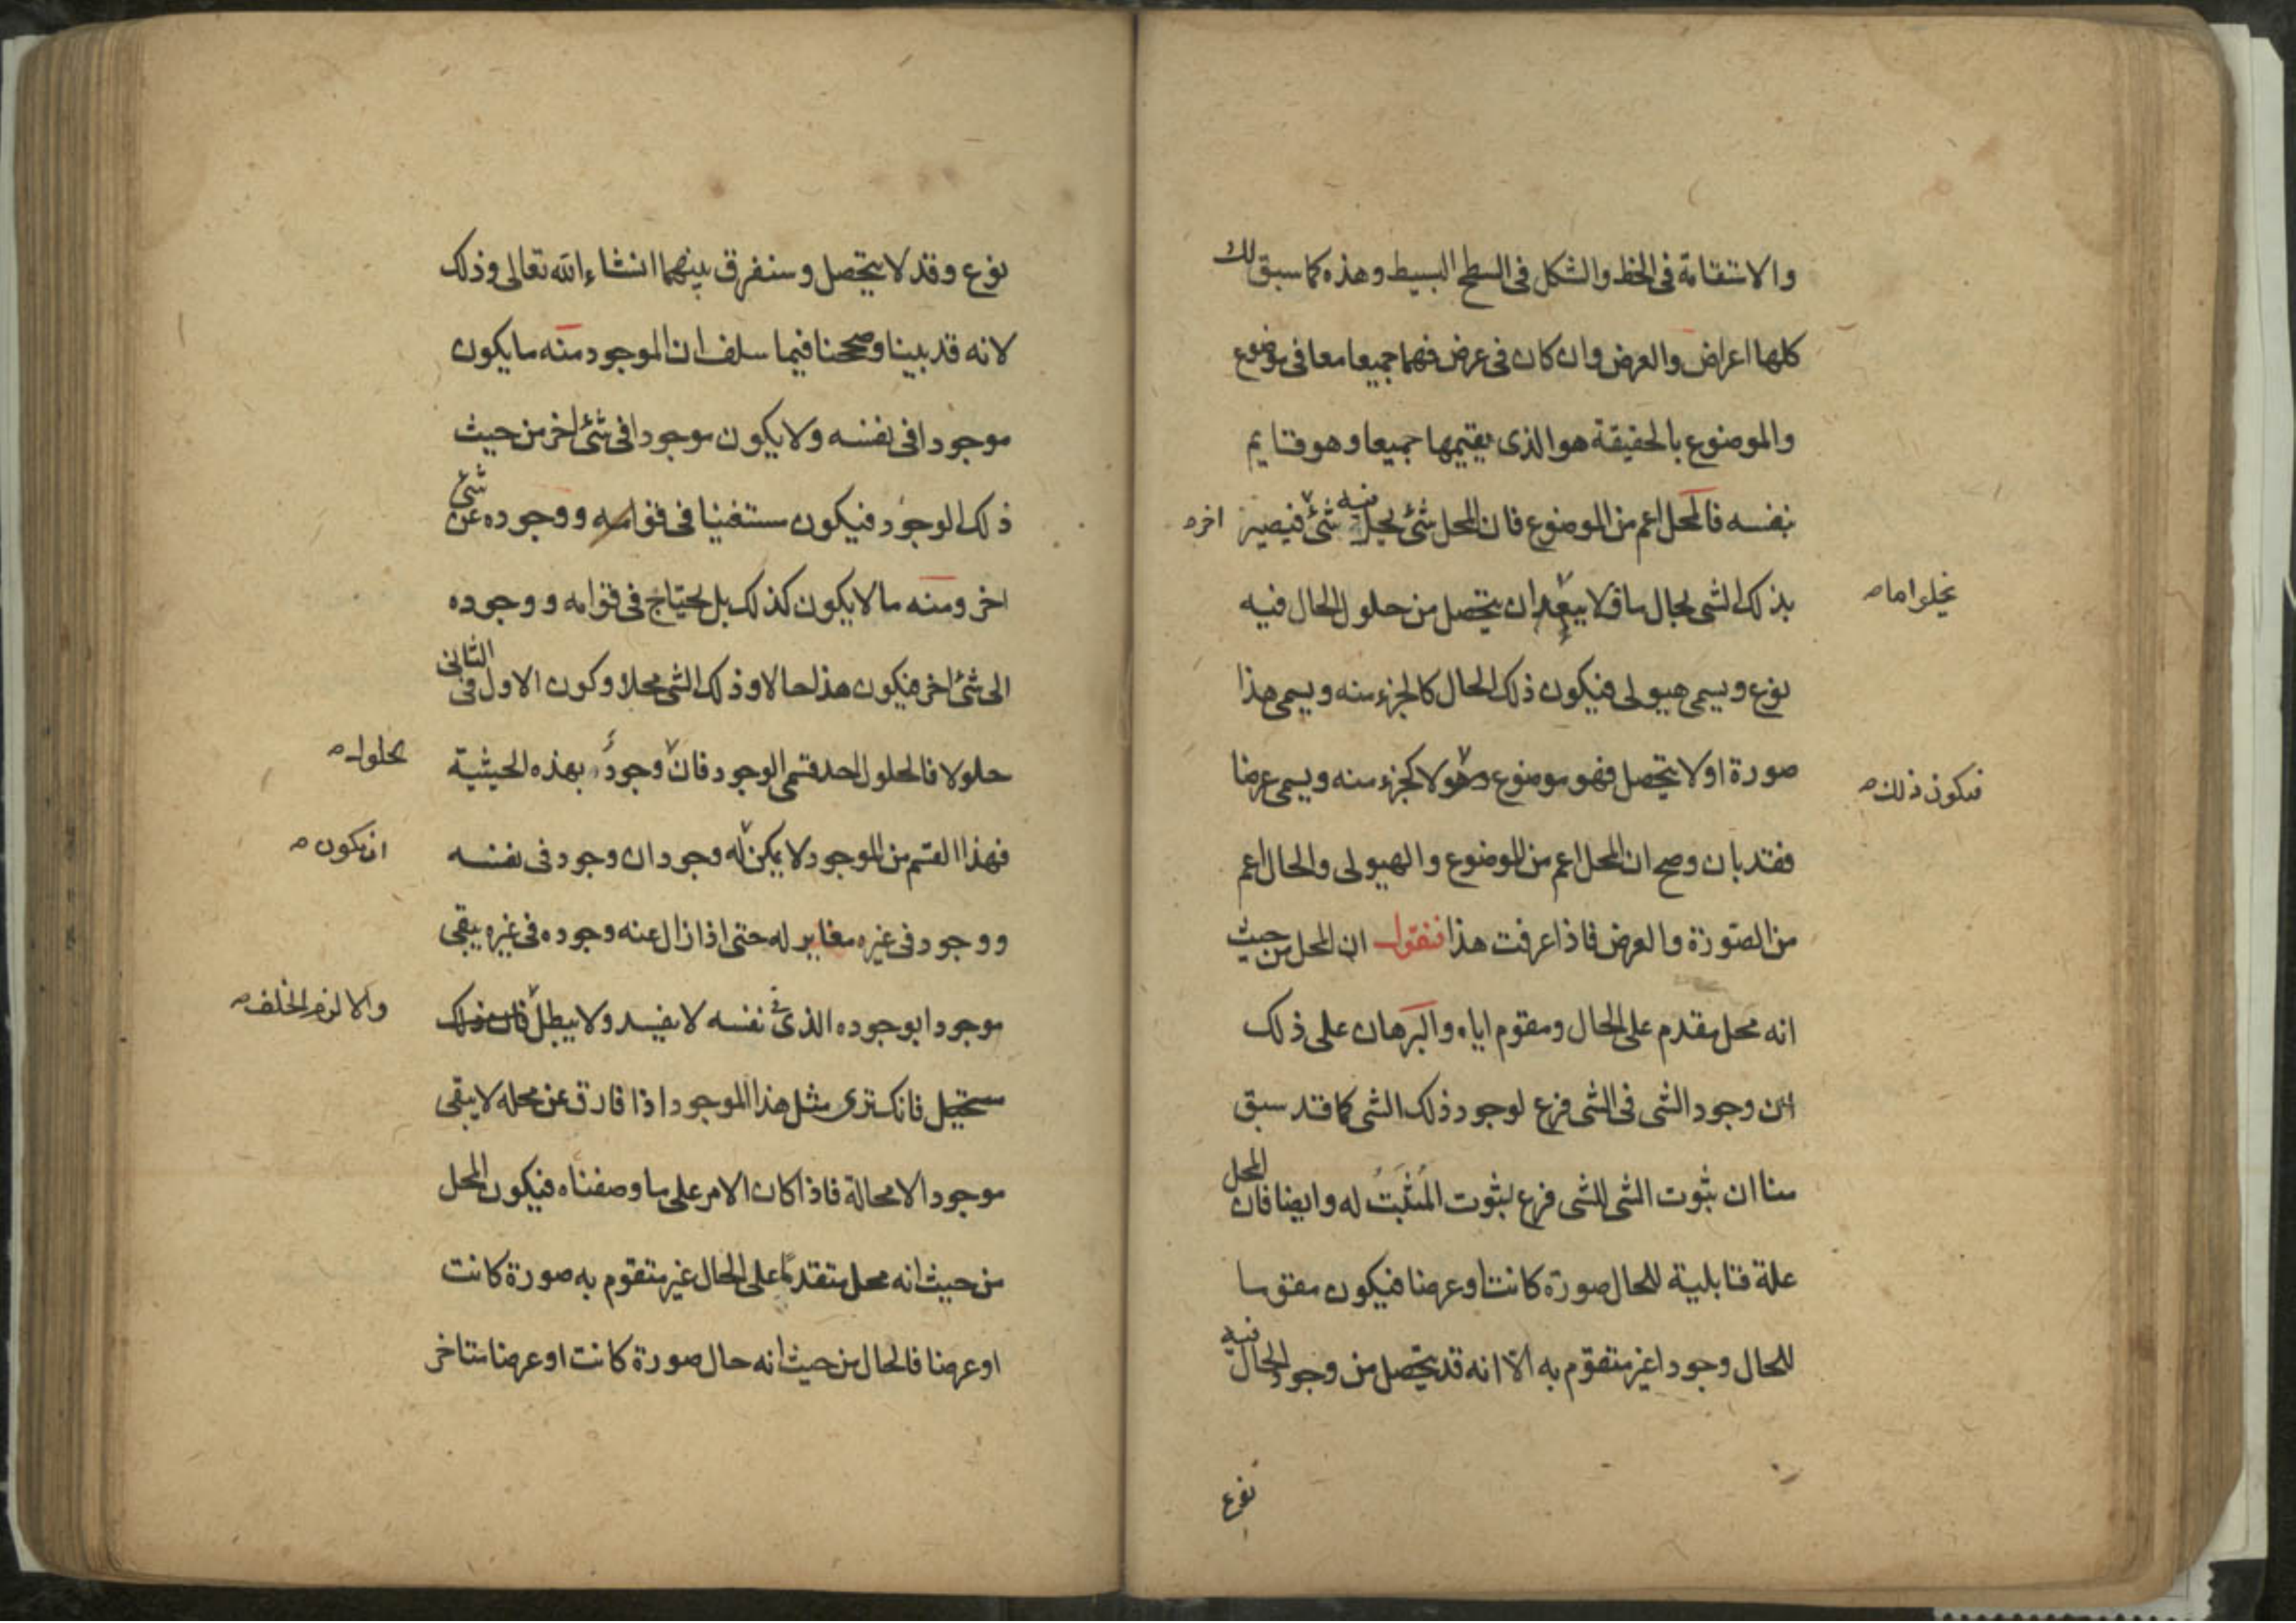 والاستقامة فى الخط والشكل فى السطح البسيط وهذه كما سبق لك
كلها اعراض والعرض وان كان فى عرض فهما جميعا معا فى موضوع
والموضوع بالحقيقة هو الذى يقيمها جميعا وهو قايم
بنفسه فالمحل اعم من الموضوع فان المحل شئ يحل فيه شئ فيصير
اخر
بذلك الشى بحال ما ولا يبعد ان يتحصل من حلول الحال فيه
يخلو اما
نوع ويسمى هيولى فيكون ذلك الحال كالجزء منه ويسمى هذا
صورة او لا يتحصل فهو موضوع وهو لا كجزء منه ويسمى عرضا
فيكون ذلك
فقد بان وصح ان المحل اعم من الموضوع والهيولى والحال اعم
من الصورة والعرض فاذا عرفت هذا فنقول ان المحل من حيث
انه محل مقدم على الحال ومقوم اياه والبرهان على ذلك
ان وجود الشى فى الشى فرع لوجود ذلك الشى كما قد سبق
منا ان ثبوت الشى للشى فرع لثبوت المُثْبَتُ له وايضا فان المحل
علة قابلية للحال صورة كانت او عرضا فيكون مقوما
للحال وجودا غير متقوم به الا انه قد يتحصل من وجود الحال فيه
نوع
نوع وقد لا يتحصل وسنفرق بينهما انشاء الله تعالى وذلك
لانه قد بينا وصححنا فيما سلف ان الموجود منه ما يكون
موجودا فى نفسه ولا يكون موجودا فى شئ اخر من حيث
ذلك الوجود فيكون مستغنيا فى قوامه ووجوده عن شئ
اخر ومنه ما لا يكون كذلك بل يحتاج فى قوامه ووجوده
الى شئ اخر فيكون هذا حالا وذلك الشى محلا وكون الاول فى الثانى
حلولا فالحلول احد قسمى الوجود فان وجود بهذه الحيثية
حلول
فهذا القسم من الموجود لا يمكن له وجودان وجود فى نفسه
ان يكون
ووجود فى غيره مغاير له حتى اذا زال عنه وجوده فى غيره يبقى
موجودا بوجوده الذى فى نفسه لا يفسد ولا يبطل فان ذلك
والا لزم الخلف
مستحيل فانك ترى مثل هذا الموجود اذا فارق عن محله لا يبقى
موجودا لا محالة فاذا كان الامر على ما وصفناه فيكون المحل
من حيث انه محل متقدما على الحال غير متقوم به صورة كانت
او عرضا فالحال من حيث انه حال صورة كانت او عرضا متاخر